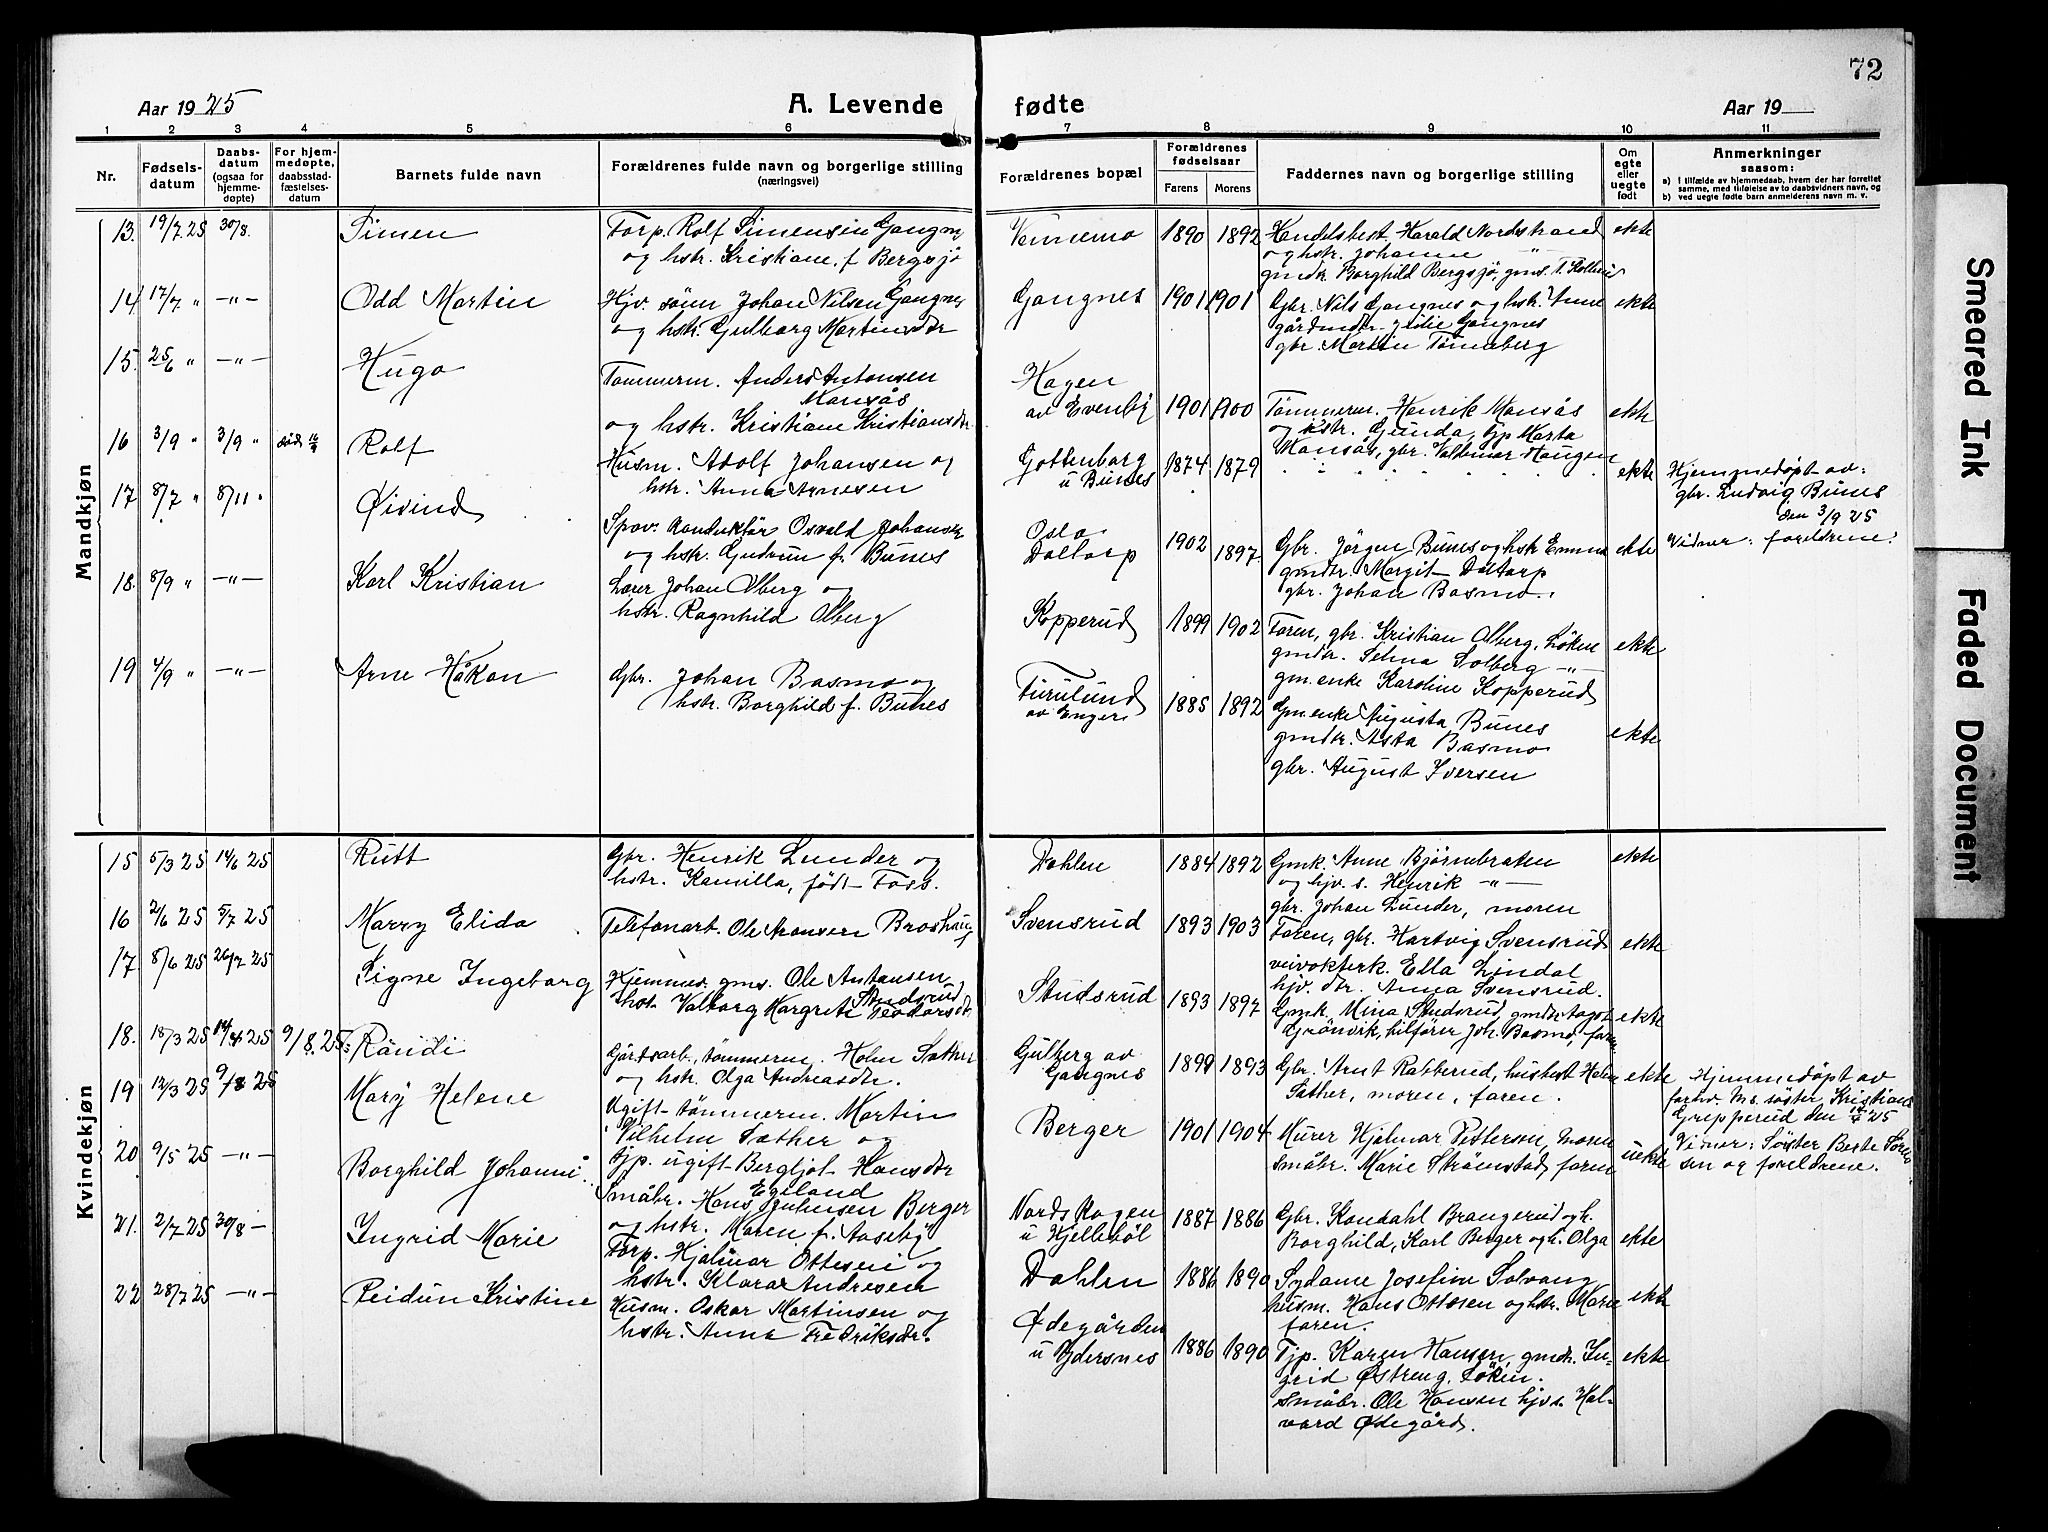 72
Aar 1925
A. Levende
fødte
Aar 19
1 2 3 4 5 6 7 8 9 10 11
Nr.
Fødsels-
datum
Daabs-
datum
(ogsaa for
hjemme-
døpte)
For hjem-
medøpte,
daabsstad-
fæstelses-
datum
Barnets fulde navn
Forældrenes fulde navn og borgerlige stilling
(næringsvei)
Forældrenes bopæl
Forældrenes
fødselsaar
Farens Morens
Faddernes navn og borgerlige stilling
Om
egte
eller
uegte
født
Anmerkninger
saasom:
a) i tilfælde av hjemmedaab, hvem der har forrettet
samme, med tilføielse av to daabsvidners navn, og
b) ved uegte fødte barn anmelderens navn m. v.
Mandkjøn
13. 19/7 25 30/8. Simen
Forp. Rolf Simensen Gangnes
og hstr. Kristiane, f. Bergsjø
Vennemo 1890 1892
Handelsbest. Harald Nordstrand
og hstr. Johanne "
gmdtr. Borghild Bergsjö, gms. T.
ekte
14 17/7 " -"- Odd Martin
Hjv. sönn Johan Nilsen Gangnes
og hstr. Gulborg Martinsdtr
Gangnes 1901 1901
Gbr. Nils Gangnes og hstr. Anne
gårdmdtr. Julie Gangnes
gbr. Martin Tönneberg
ekte
15. 25/6 " -"- Hugo
Tömmerm. Anders Antonsen
Mansås
og hstr. Kristiane Kristiansdtr.
Hagen
av Evenby 1901 1900
Tömmerm. Henrik Mansås
og hstr. Gunda, tjp Marta
Mansås, gbr. Valdemar Haugen
ekte
16 3/9 " 3/9 " Rolf
Husm. Adolf Johansen og
hstr. Anna Arnesen
Gottenborg
u Bunes 1874 1879
ekte
Hjemmedöpt av:
gbr. Ludvig Bunes
den 3/9 25
Vidner: foreldrene.
17 8/7 " 8/11 " Øivind
Spov. Konduktör Osvald Johansen
og hstr. Gudrun f. Bunes
Oslo
Daltorp 1902 1897.
Gbr. Jörgen Bunes og hstr Emma
gmdtr. Margit Daltorp
gbr. Johan Basmo.
ekte
18. 8/9 " -"- Karl Kristian
Lærer Johan Olberg og
hstr. Ragnhild Olberg
Kopperud 1899 1902
Faren, gbr. Kristian Olberg, Löken
gmdtr. Selma Solberg -"-
gm.enke Karoline Kopperud
ekte
19 4/9 " -"- Arne Håkon
Gbr. Johan Basmo og
hstr. Borghild f. Bunes
Furulund
av Enger 1885 1892
Gm.enke Augusta Bunes
gmdtr. Asta Basmo
gbr. August Iversen
ekte
Kvindekjøn
15 5/3 25 14/6 25 Rutt
Gbr. Henrik Lunder og
hstr. Kamilla, født Foss.
Dahlen 1884 1892
Gmk. Anne Björnebraten
og hjv. s. Henrik -"-
gbr. Johan Lunder, moren
ekte
16 2/6 25 5/7 25 Marry Elida
Telefonarb. Ole Aronsen Broshaug
Svensrud 1893 1903
Faren, gbr. Hartvig Svensrud
veivokterk. Ella Lindal
hjv. dtr. Anna Svensrud.
ekte
17 8/6 25 26/7 25 Signe Ingeborg
Hjemmev. gms. Ole Antonsen
Studsrud
hst. Valborg Margrete Teodorsdtr
Studsrud 1893 1897
Gmk. Mina Studsrud, gmdtr Aagot
Grönvik, bilförer Joh. Basmo, faren
ekte
18. 18/3 25 14/4 25 9/8.25: Randi
Gårdsarb., tömmerm. Holm Sæther
og hstr. Olga Andreasdtr.
Gulberg av
Gangnes 1899 1893
Gbr. Arnt Rabberud, husbest Helene
Sæther, moren, faren.
ekte
Hjemmedöpt av
forhv. Ms. söster Kristiane
Grepperud den 14/4 25
Vidner: Söster Berte Sören
sen og foreldrene.
19 12/3 25 9/8 25 Mary Helene
Ugift tömmerm. Martin
Vilhelm Sæther og
tjp. ugift Bergljot Hansdtr
Egeland
Berger 1901 1904
Murer Hjalmar Pettersen, moren
småbr. Marie Strömstad, faren
uekte
20 9/5 25 -"- Borghild Johanne
Småbr. Hans Julensen Berger
og hstr. Maren f. Aaseby
Nords Hagen
u Hjellebøl 1887 1886
Gbr. Kondahl Brangerud og h.
Borghild, Karl Berger og h. Olga
ekte
21. 2/7 25 30/8 - Ingrid Marie
Forp. Hjalmar Ottesen og
hstr. Klara Andresen
Dahlen 1886 1890
Sydame Josefine Solvang
husm. Hans Ottesen og hstr. Marie
faren.
ekte
22 28/7 25 -"- Reidun Kristine
Husm. Oskar Martinsen og
hstr. Anna Fredriksdtr.
Ødegården
u Ydersnes 1886 1890
Tjp. Karen Hansen, gmdtr. In-
grid Østreng, Löken.
Småbr. Ole Hansen hjvs. Hal-
vard Ødegård.
ekte
Smeared Ink
Faded Document